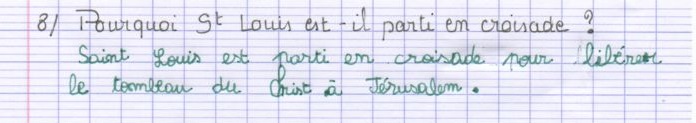 8/ Pourquoi St Louis est-il parti en croisade ?
Saint Louis est parti en croisade pour libérer
le tombeau du Christ à Jérusalem.